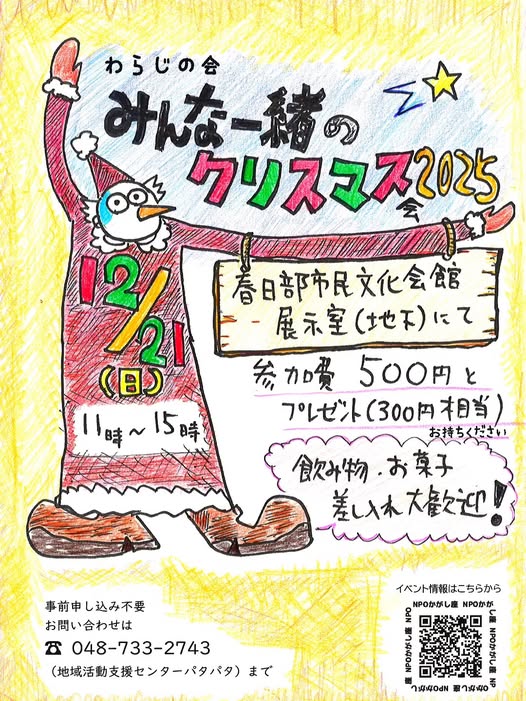 わらじの会
みんな一緒の
クリスマス会2025
12/21
(日)
11時～15時
春日部市民文化会館
展示室(地下)にて
参加費 500円と
プレゼント(300円相当)
お持ちください
飲み物・お菓子
差し入れ大歓迎!
事前申し込み不要
お問い合わせは
☎ 048-733-2743
（地域活動支援センターパタパタ）まで
イベント情報はこちらから
NPOかがし座 NPOかがし座 NPOかがし座 NPOかがし座 NPOかがし座 NPO